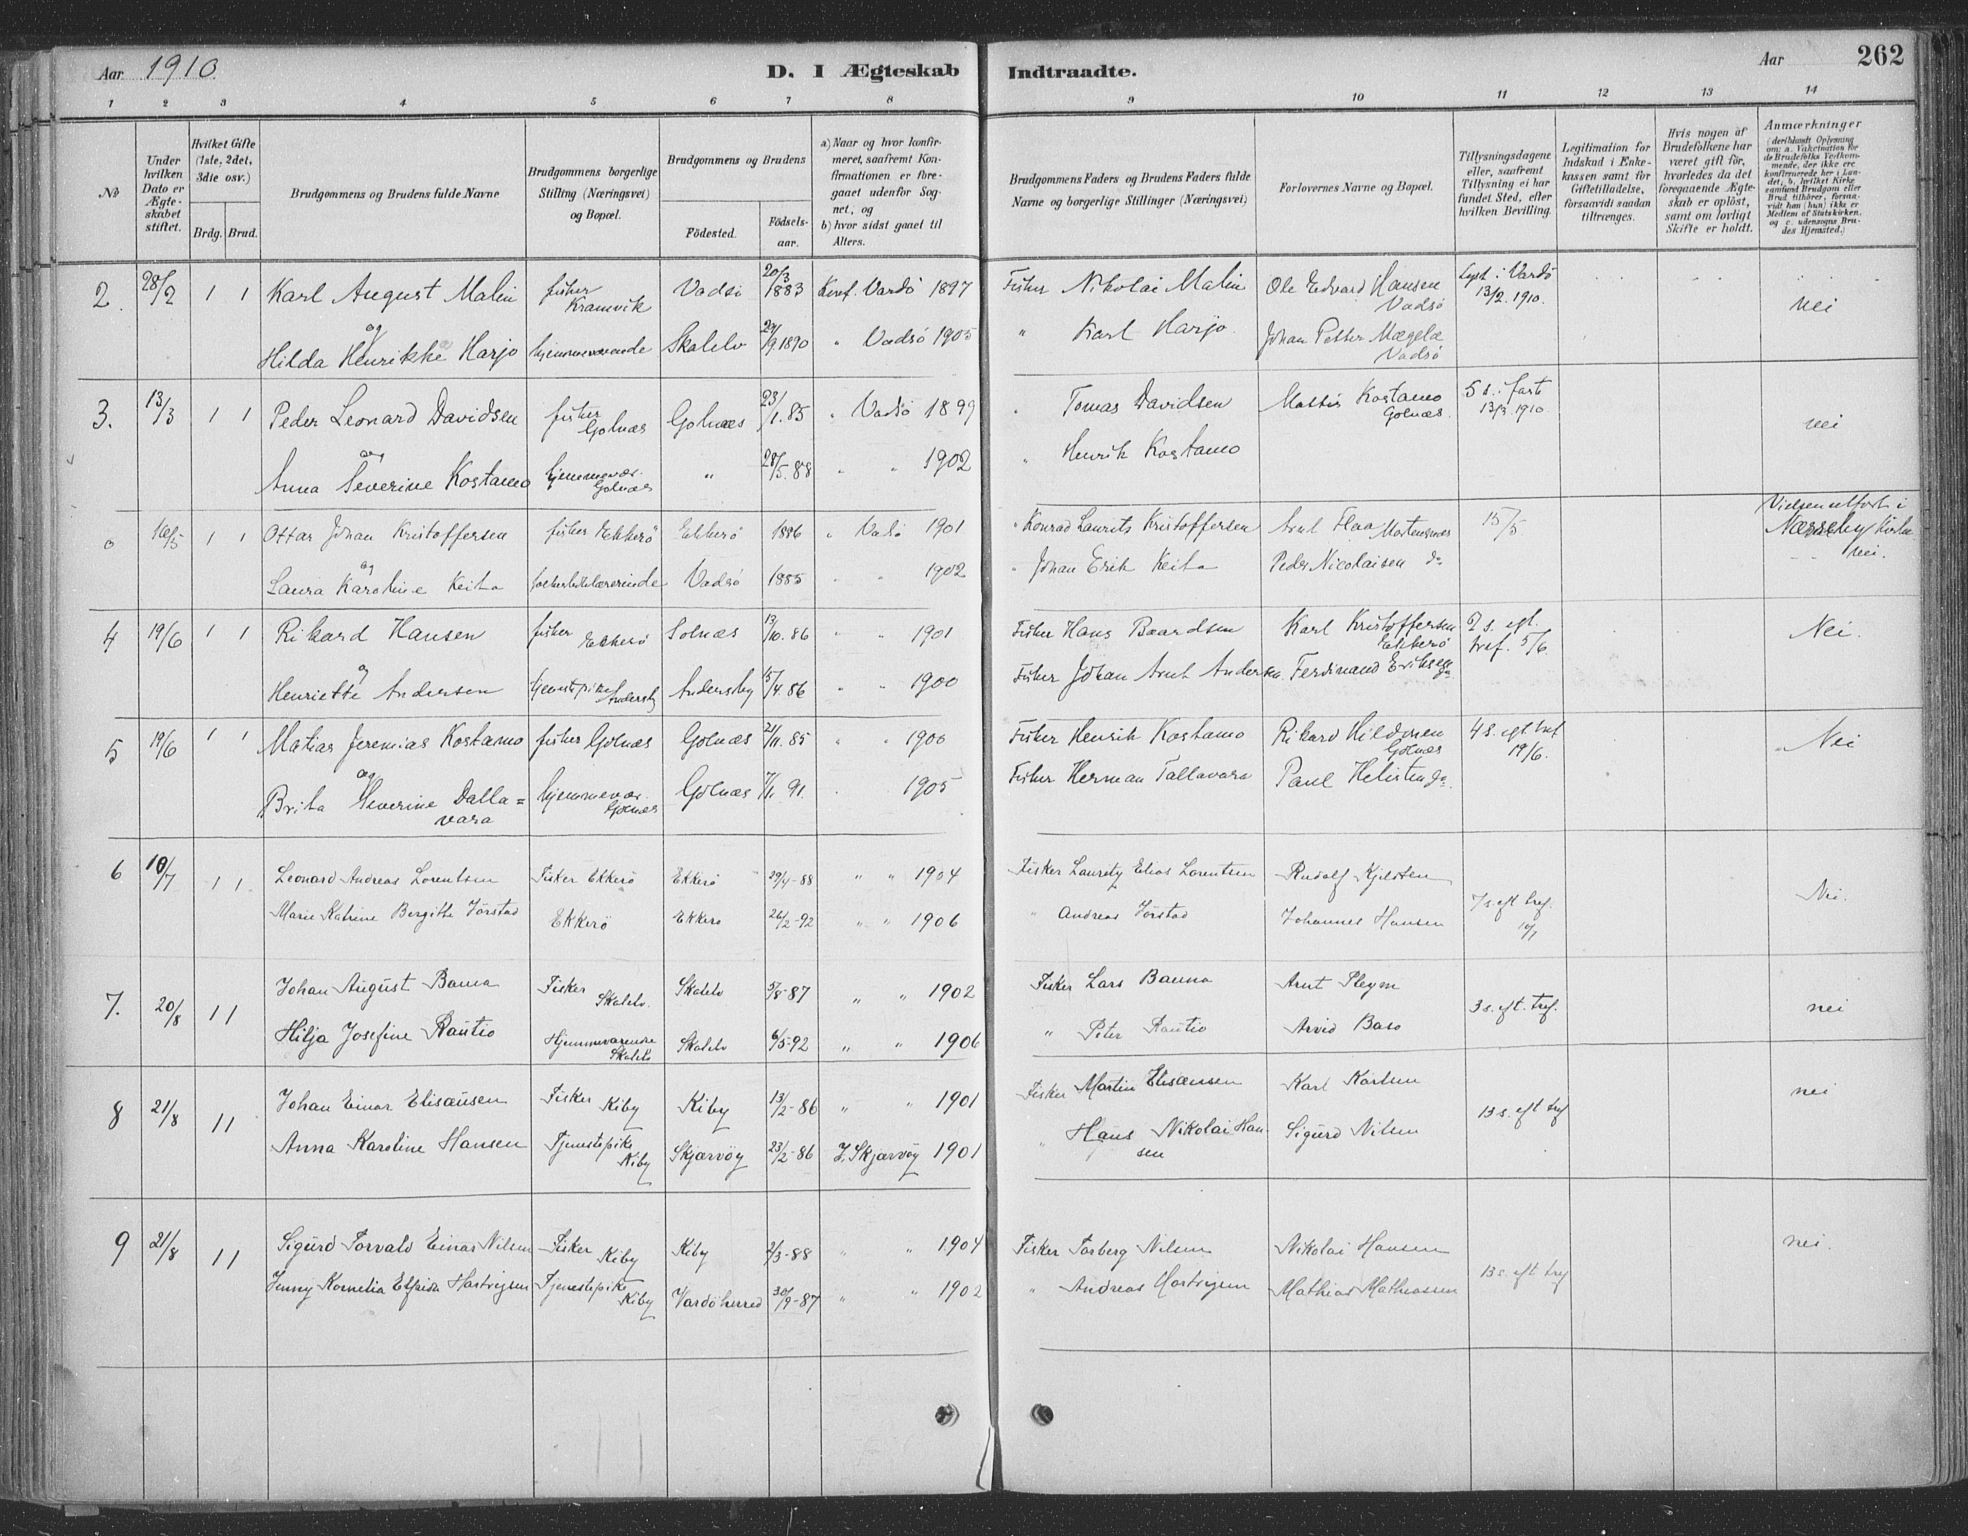 Aar 1910.
D. I Ægteskab Indtraadte.
Aar
262
1 2 3 4 5 6 7 8 9 10 11 12 13 14
No
Under hvilken Dato er Ægteskabet stiftet.
Hvilket Gifte (1ste, 2det, 3die osv.)
Brdg. Brud.
Brudgommens og Brudens fulde Navne
Brudgommens borgerlige Stilling (Næringsvei) og Bopæl.
Brudgommens og Brudens
Födested.
Födselsaar.
a) Naar og hvor konfirmeret, saafremt Konfirmationen er foregaaet udenfor Sognet, og
b) hvor sidst gaaet til Alters.
Brudgommens Faders og Brudens Faders fulde Navne og borgerlige Stillinger (Næringsvei)
Forlovernes Navne og Bopæl.
Tillysningsdagene eller, saafremt Tillysning ei har fundet Sted, efter hvilken Bevilling.
Legitimation for Indskud i Enkekassen samt for Giftetilladelse, forsaavidt saadan tiltrænges.
Hvis nogen af Brudefolkene har været gift för, hvorledes da det foregaaende Ægteskab er oplöst, samt om lovligt Skifte er holdt.
Anmærkninger
(deriblandt Oplysning om: a. Vakcination for de Brudefolks Vedkommende, der ikke ere konfirmerede her i Landet, b. hvilket Kirkesamfund Brudgom eller Brud tilhörer, forsaavidt han (hun) ikke er Medlem af Statskirken, og c. udensogns Brudes Hjemsted.)
2. 28/2 1 1 Karl August Malin fisker Kramvik Vadsö 20/3 1883 Konf. Vardö 1897 Fisker Nikolai Malin Ole Edvard Hansen Vadsö lyst i Vardö 13/2 1910. nei
og
Hilda Henrikke Harjo hjemmeværende Skalelv 29/9 1890 " Vadsö 1905 " Karl Harjo. Johan Petter Mægelæ Vadsö
3. 13/3 1 1 Peder Leonard Davidsen fisker Golnæs Golnæs 23/1. 85 " Vadsö 1899 " Tomas Davidsen Mattis Kostamo Golnæs. 5 s. i faste 13/3 1910 nei
og
Anna Severine Kostamo hjemmevær. Golnæs " 28/5. 88 " " 1902 " Henrik Kostamo
0 16/5 1 1 Ottar Johan Kristoffersen fisker Ekkerö Ekkerö 1886 " Vadsö 1901 " Konrad Laurits Kristoffersen Arnt Flaa Mortensnæs 15/5 Vielsen utført i Næsseby kirke nei.
og
Laura Karoline Keita Vadsö 1885 " " 1902 " Johan Erik Keita Peder Nicolaisen do
4 19/6 1 1 Rikard Hansen fisker Ekkerö Golnæs 13/10. 86 " " 1901 Fisker Hans Baardsen Karl Kristoffersen Ekkerö 2 s. eft. tref. 5/6 Nei.
og
Henriette Andersen tjenestepike Andersby Andersby 15/4. 86 " " 1900 Fisker Johan Arnt Andersen. Ferdinand Eriksen do
5 19/6 1 1 Matias Jeremias Kostamo fisker Golnæs Golnæs 21/11. 85 " " 1900 Fisker Henrik Kostamo Rikard Hildonen Golnæs 4 s. eft tref 19/6. Nei
og
Brita Severine Dallavara hjemmevær. Golnæs Golnæs 7/1. 91. " 1905 Fisker Herman Tallavara Paul Helisten do.
6 10/7 1 1 Leonard Andreas Lorentsen Fisker Ekkerö Ekkerö 29/4-88 " " 1904 Fisker Laurity Elias Lorentsen Rudolf Kjelsten 7 s. eft tref. 10/7 Nei.
Marie Katrine Bergitte Jörstad Ekkerö Ekkerö 26/2-92 " " 1906 " Andreas Jörstad Johannes Hansen
7. 20/8 1 1 Johan August Bauna Fisker Skalelv. Skalelv 5/8-87 " " 1902 Fisker Lars Bauna Arnt Pleym 3 s. eft. tref. nei
Hilja Josefine Rautio Hjemmeværende Skalelv Skalelv 6/5-92 " " 1906 " Peter Rautio Arvid Baso
8 21/8 1 1 Johan Einar Elisæusen Fisker Kiby Kiby 13/2-86 " " 1901 Fisker Martin Elisæusen Karl Karlsen 13 s. eft tref nei
Anna Karoline Hansen Tjenestepike Kiby Skjærvöy 23/2-86 I Skjærvöy 1901 " Hans Nikolai Hansen Sigurd Nilsen
9 21/8 1 1 Sigurd Torvald Einar Nilsen Fisker Kiby Kiby 2/3-88 " " 1904 Fisker Torberg Nilsen Nikolai Hansen 13 s. eft tref nei.
Jenny Kornelia Elfrida Hartvigsen Tjenestepike Kiby Vardöherred 30/9-87 " " 1902 " Andreas Hartvigsen Mathias Mathiassen